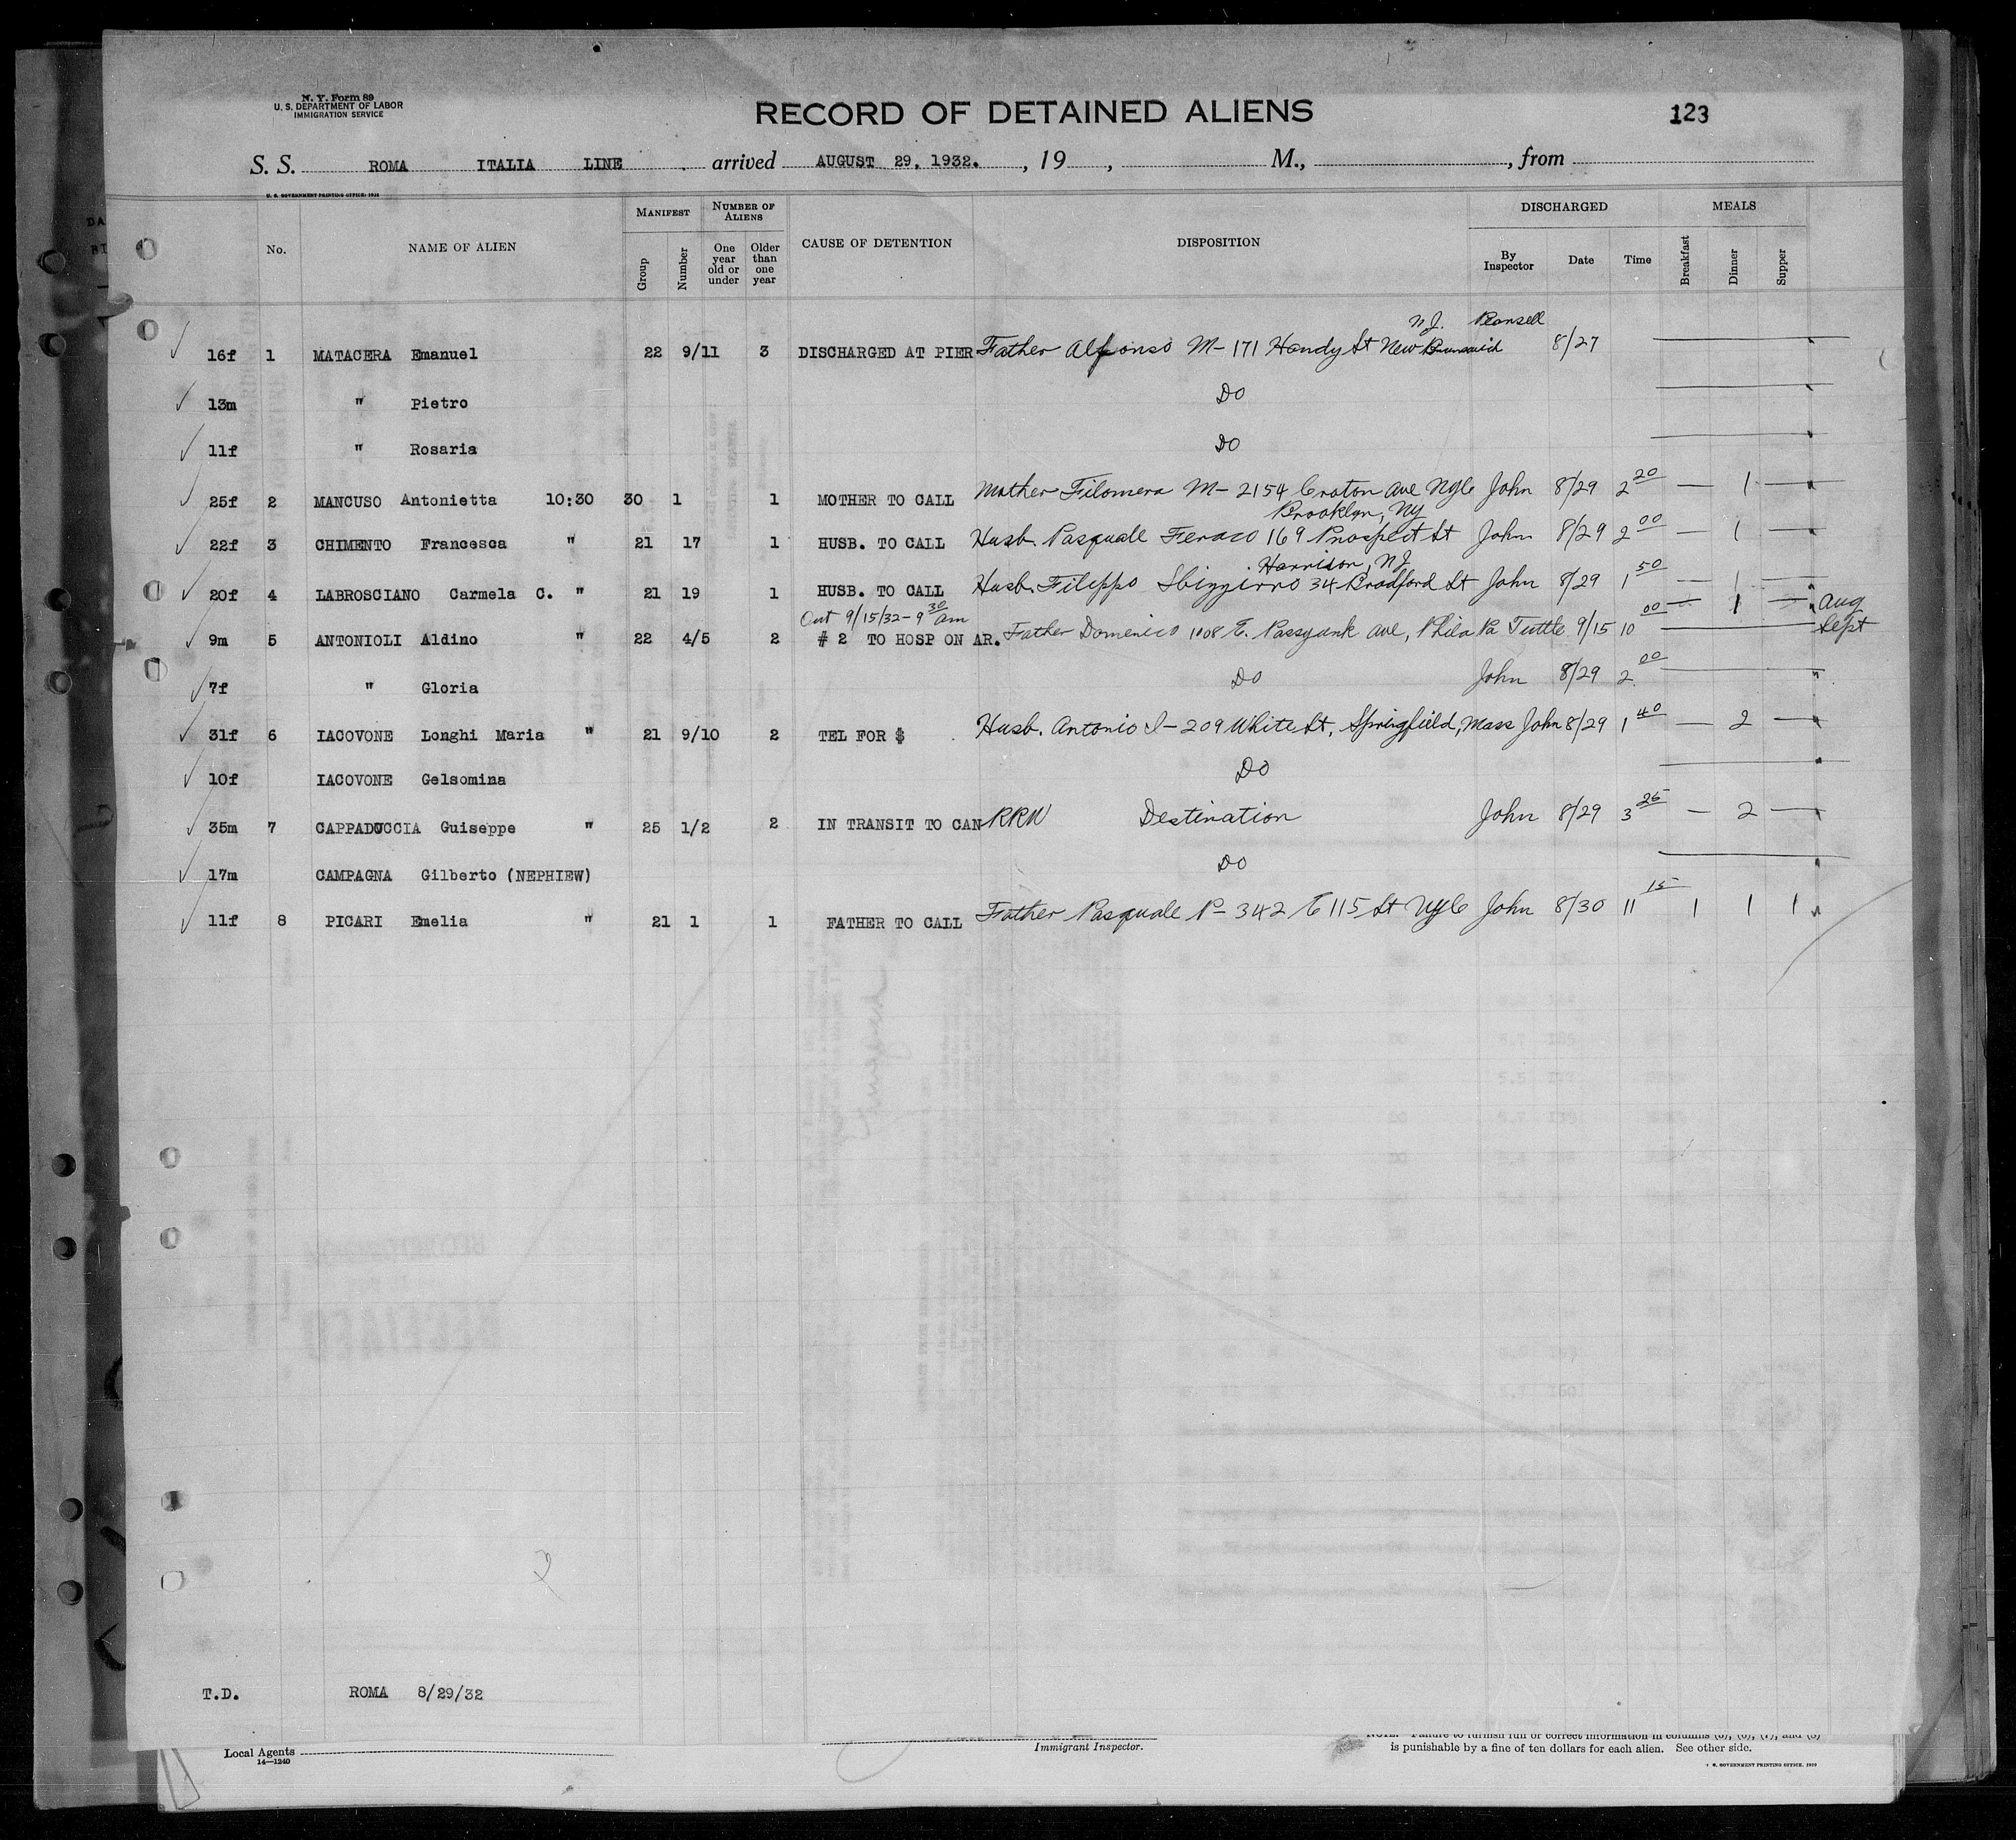 N. Y. Form 89
U. S. DEPARTMENT OF LABOR
IMMIGRATION SERVICE
RECORD OF DETAINED ALIENS
123
S. S. ROMA ITALIA LINE arrived AUGUST 29, 1932. , 19 , M., , from
U. S. GOVERNMENT PRINTING OFFICE: 1932
No. NAME OF ALIEN MANIFEST Group Number NUMBER OF ALIENS One year old or under Older than one year CAUSE OF DETENTION DISPOSITION DISCHARGED By Inspector Date Time MEALS Breakfast Dinner Supper
16f 1 MATACERA Emanuel 22 9/11 3 DISCHARGED AT PIER Father Alfonso M- 171 Handy St New Brunswich N.J. 8/27
13m " Pietro DO
11f " Rosaria DO
25f 2 MANCUSO Antonietta 10:30 30 1 1 MOTHER TO CALL Mother Filomera M- 2154 Croton Ave NYC John 8/29 2 20 — 1 —
Brooklyn, NY
22f 3 CHIMENTO Francesca " 21 17 1 HUSB. TO CALL Husb. Pasquale Feraco 169 Prospect St John 8/29 2 00 — 1 —
Harrison, NJ
20f 4 LABROSCIANO Carmela C. " 21 19 1 HUSB. TO CALL Husb. Filippo 34 Bradford St John 8/29 1 50 — 1 —
Out 9/15/32 - 9 30 am — 1 — Aug
9m 5 ANTONIOLI Aldino " 22 4/5 2 # 2 TO HOSP ON AR. Father Domenico 1008 E. Passyunk Ave, Phila Pa Tuttle 9/15 10 00 Sept
7f " Gloria DO John 8/29 2 00
31f 6 IACOVONE Longhi Maria " 21 9/10 2 TEL FOR $ Husb. Antonio I- 209 White St, Springfield, Mass John 8/29 1 40 — 2 —
10f IACOVONE Gelsomina DO
35m 7 CAPPADUCCIA Guiseppe " 25 1/2 2 IN TRANSIT TO CAN RRW Destination John 8/29 3 25 — 2 —
17m CAMPAGNA Gilberto (NEPHIEW) DO
11f 8 PICARI Emelia " 21 1 1 FATHER TO CALL Father Pasquale P- 342 E 115 St NYC John 8/30 11 15 1 1 1
T.D. ROMA 8/29/32
Local Agents
14—1240
Immigrant Inspector.
is punishable by a fine of ten dollars for each alien. See other side.